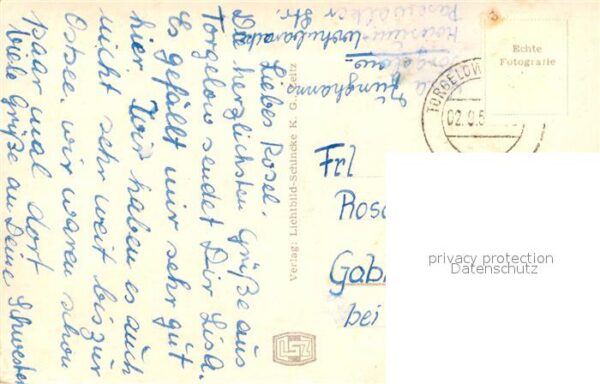 Liebes Rosel.
Die herzlichsten Grüße aus
Torgelow sendet Dir Lisa.
Es gefällt mir sehr gut
hier. Wir haben es auch
nicht sehr weit bis zur
Ostsee. Wir waren schon
paar mal dort
Viele Grüße an Deine Schwester
Junghanns
Torgelow
Pasewalker Str.
Verlag: Lichtbild-Schincke K. G.
Echte
Fotografie
TORGELOW
02.9.5
Frl
Rosa
Gab
bei
LSZ
privacy protection
Datenschutz